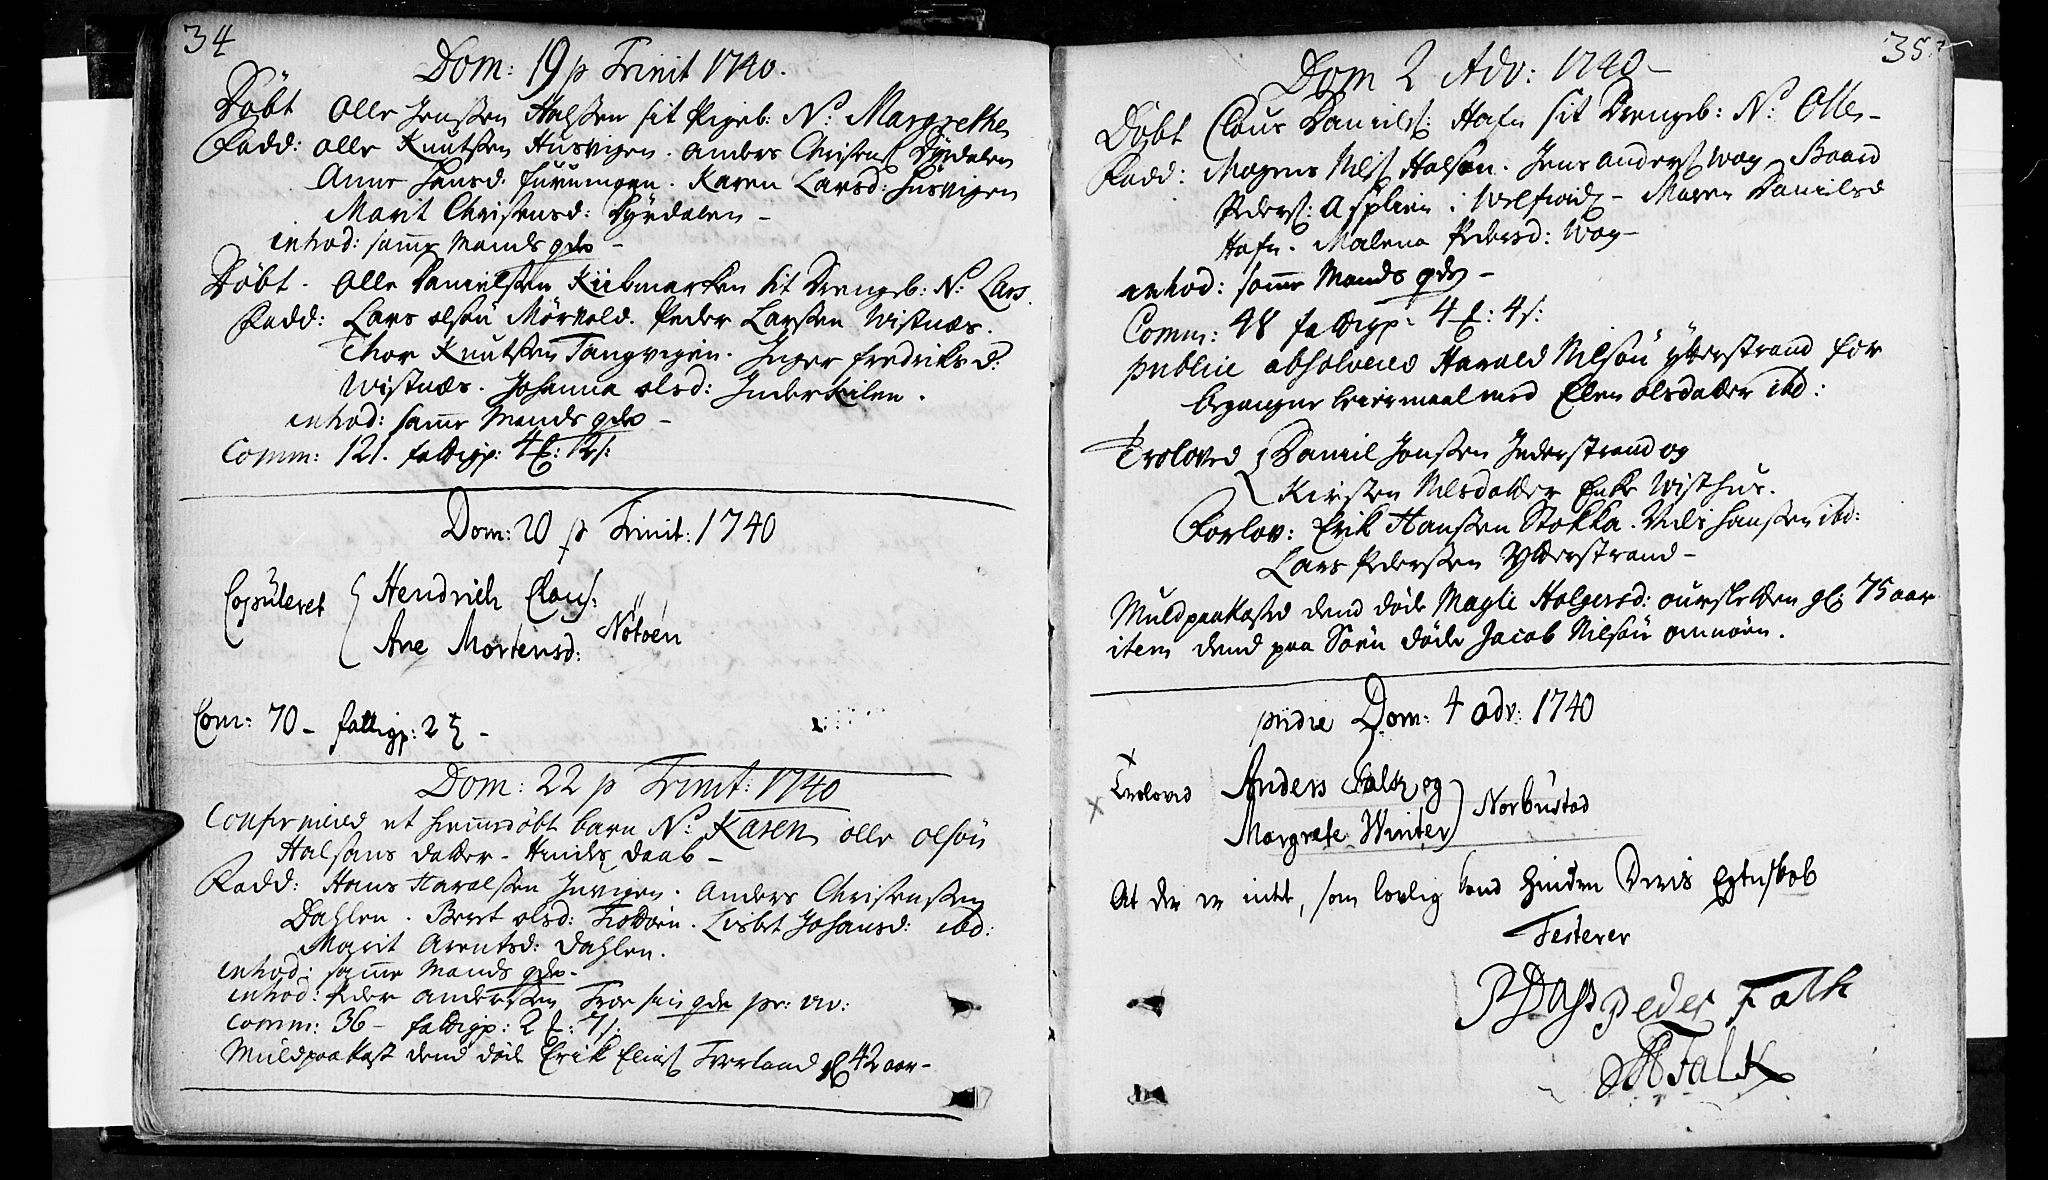 34
Dom: 19 p Trinit 1740.
Döbt Olle Jenssen Halssen sit Pigeb: N: Margrethe
Fadd: Olle Knutssen Husvigen. Anders Christens Dÿrdalen
Anne Hansd: Furumoen. Karen Larsd: Husvigen
Marit Christensd: Dÿrdalen –
introd: samme Mands qde –
Döbt. Olle Danielssen Kiibmarken sit Drengeb: N: Lars.
Fadd: Lars olsön Mörkold. Peder Larssen Wistnæs.
Thor Knutssen Tangvigen. Inger fredriksd:
Wistnæs. Johanna olsd: Inderkilen.
introd: samme Mands qde –
Comm: 121. fattigp: 4 : 12 s:
Dom: 20 p Trinit: 1740
Copuleret { Hendrich Claus:
Ane Mortensd: Nötöen
Com: 70 – fattigp: 2 –
Dom: 22 p Trinit: 1740
Confirmered et hiemedöbt barn N: Karen olle olsön
Halsans datter – daab –
Fadd: Hans Haralssen Invigen. Anders Christenssen
Dahlen. Beret olsd: . Lisbet Johansd: ibd:
Marit Arentsd: Dahlen.
introd: samme Mands qde –
introd: Peder Anderssen Troe sin qde pr: vv:
Comm: 36 – fattigp: 2 : 7 s:
Muldpaakast dend döde Erik Elias Tverland gl: 42 aar –
35
Dom 2 Adv: 1740 –
Döbt Claus Daniels: Hafn sit Drengeb: N: Olle –
Fadd: Mogens Nils Halsan. Jens Anders Wog. Baard
Peders: Asplien i – Maren Danielsd
Hafn. Malena Pedersd: Wog –
introd: samme Mands qde –
Comm: 48 fattigp: 4 : 4 s:
publice absolvered Harald Nilsön ÿtterstrand for
begangne leiermaal med Elen olsdatter ibd:
Troloved { Daniel Jonssen Inderstrand og
Kirsten Nilsdatter Enke Wisthus.
Forlov: Erik Hanssen Stokka. Nils Hanssen ibd:
Lars Pederssen ÿtterstrand –
Muldpaakasted dend döde Magli Holgersd: gl: 75 aar
item dend paa Söen döde Jacob Nilsön omnöen.
pridie Dom: 4 adv: 1740
Troloved Anders Falk og
Margrete Winter ) Norbustad
At der er intet, som lovlig kand hindre Deris Egteskab
Testerer
Peder Falk
Falk